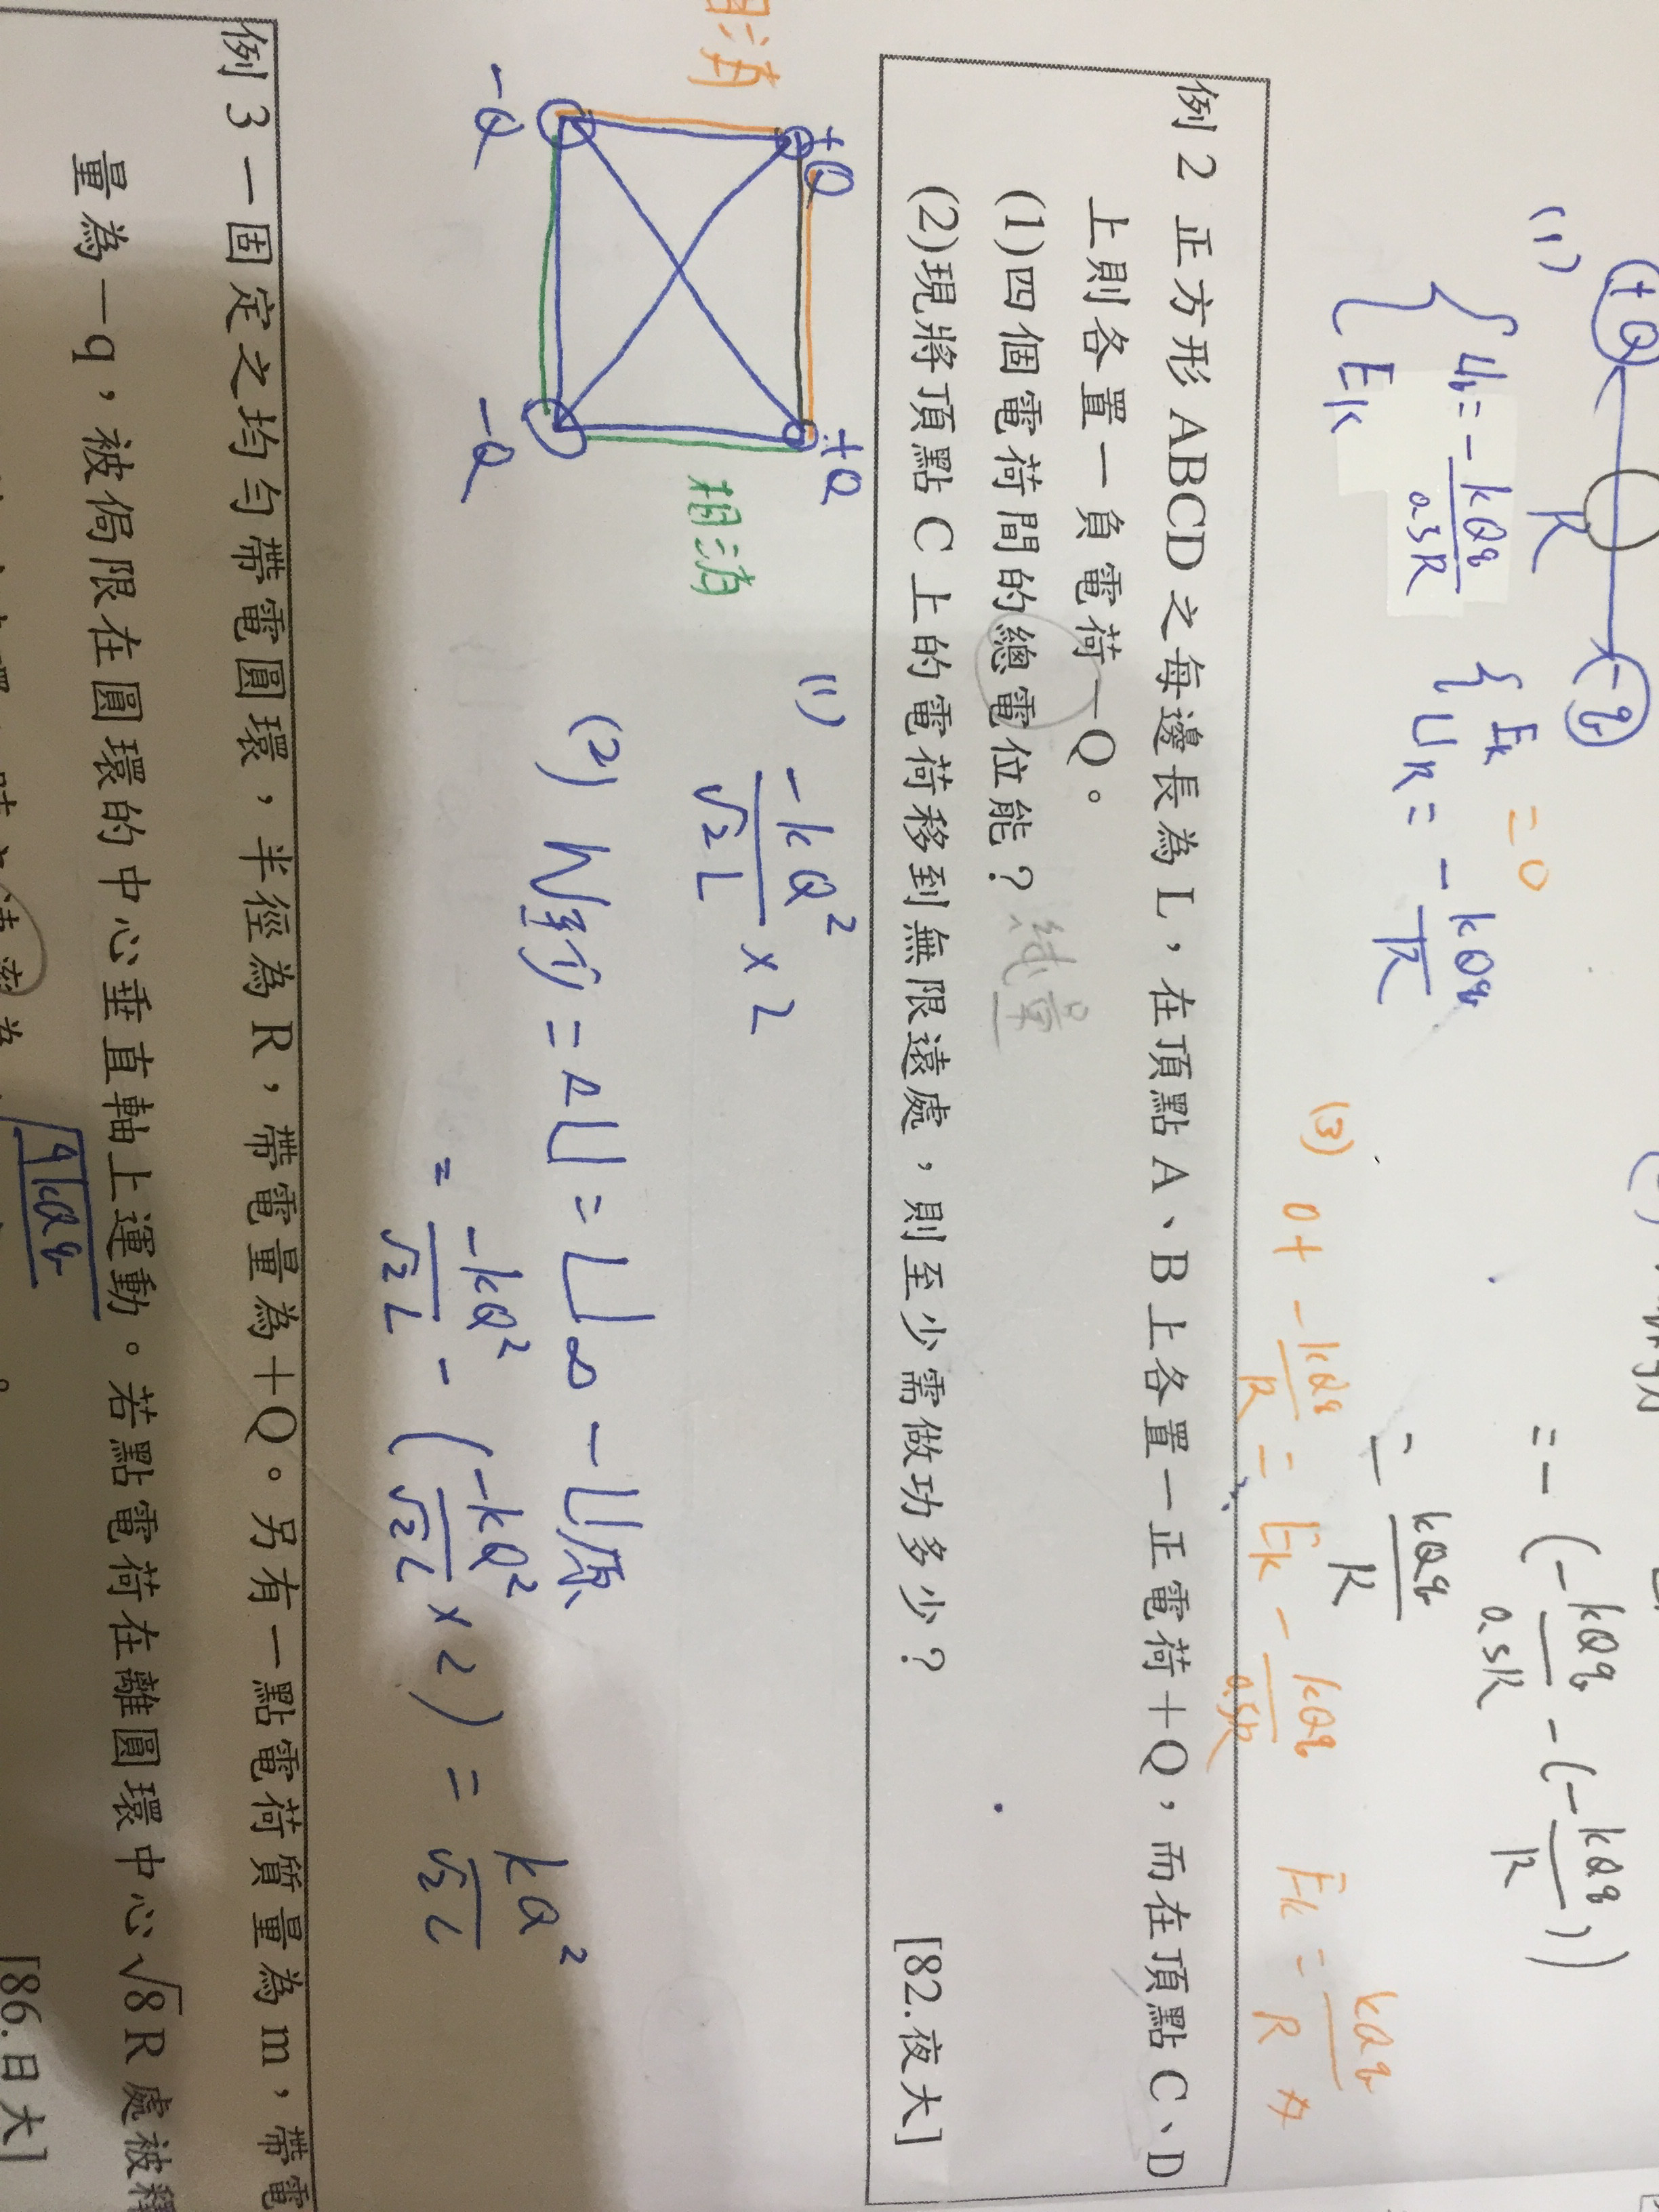 (1) +Q R -q
{ U = - kQq / 0.5R
E_K
{ E_K = 0
U_R = - kQq / R
= - ( - kQq / 0.5R - ( - kQq / R ) )
= kQq / R
(3) 0 + - kQq / R = E_K - kQq / 0.5R E_K = kQq / R
例 2 正方形 ABCD 之每邊長為 L，在頂點 A、B 上各置一正電荷＋Q，而在頂點 C、D
上則各置一負電荷－Q。
(1)四個電荷間的總電位能？ 純量
(2)現將頂點 C 上的電荷移到無限遠處，則至少需做功多少？ [82.夜大]
相消
+Q +Q
-Q -Q
相消
(1) -kQ² / √2 L × 2
(2) W外 = ΔU = U∞ - U原
= -kQ² / √2 L - ( -kQ² / √2 L × 2 ) = kQ² / √2 L
例 3 一固定之均勻帶電圓環，半徑為 R，帶電量為＋Q。另有一點電荷質量為 m，帶電
量為－q，被侷限在圓環的中心垂直軸上運動。若點電荷在離圓環中心 √8 R 處被釋
[86.日大]